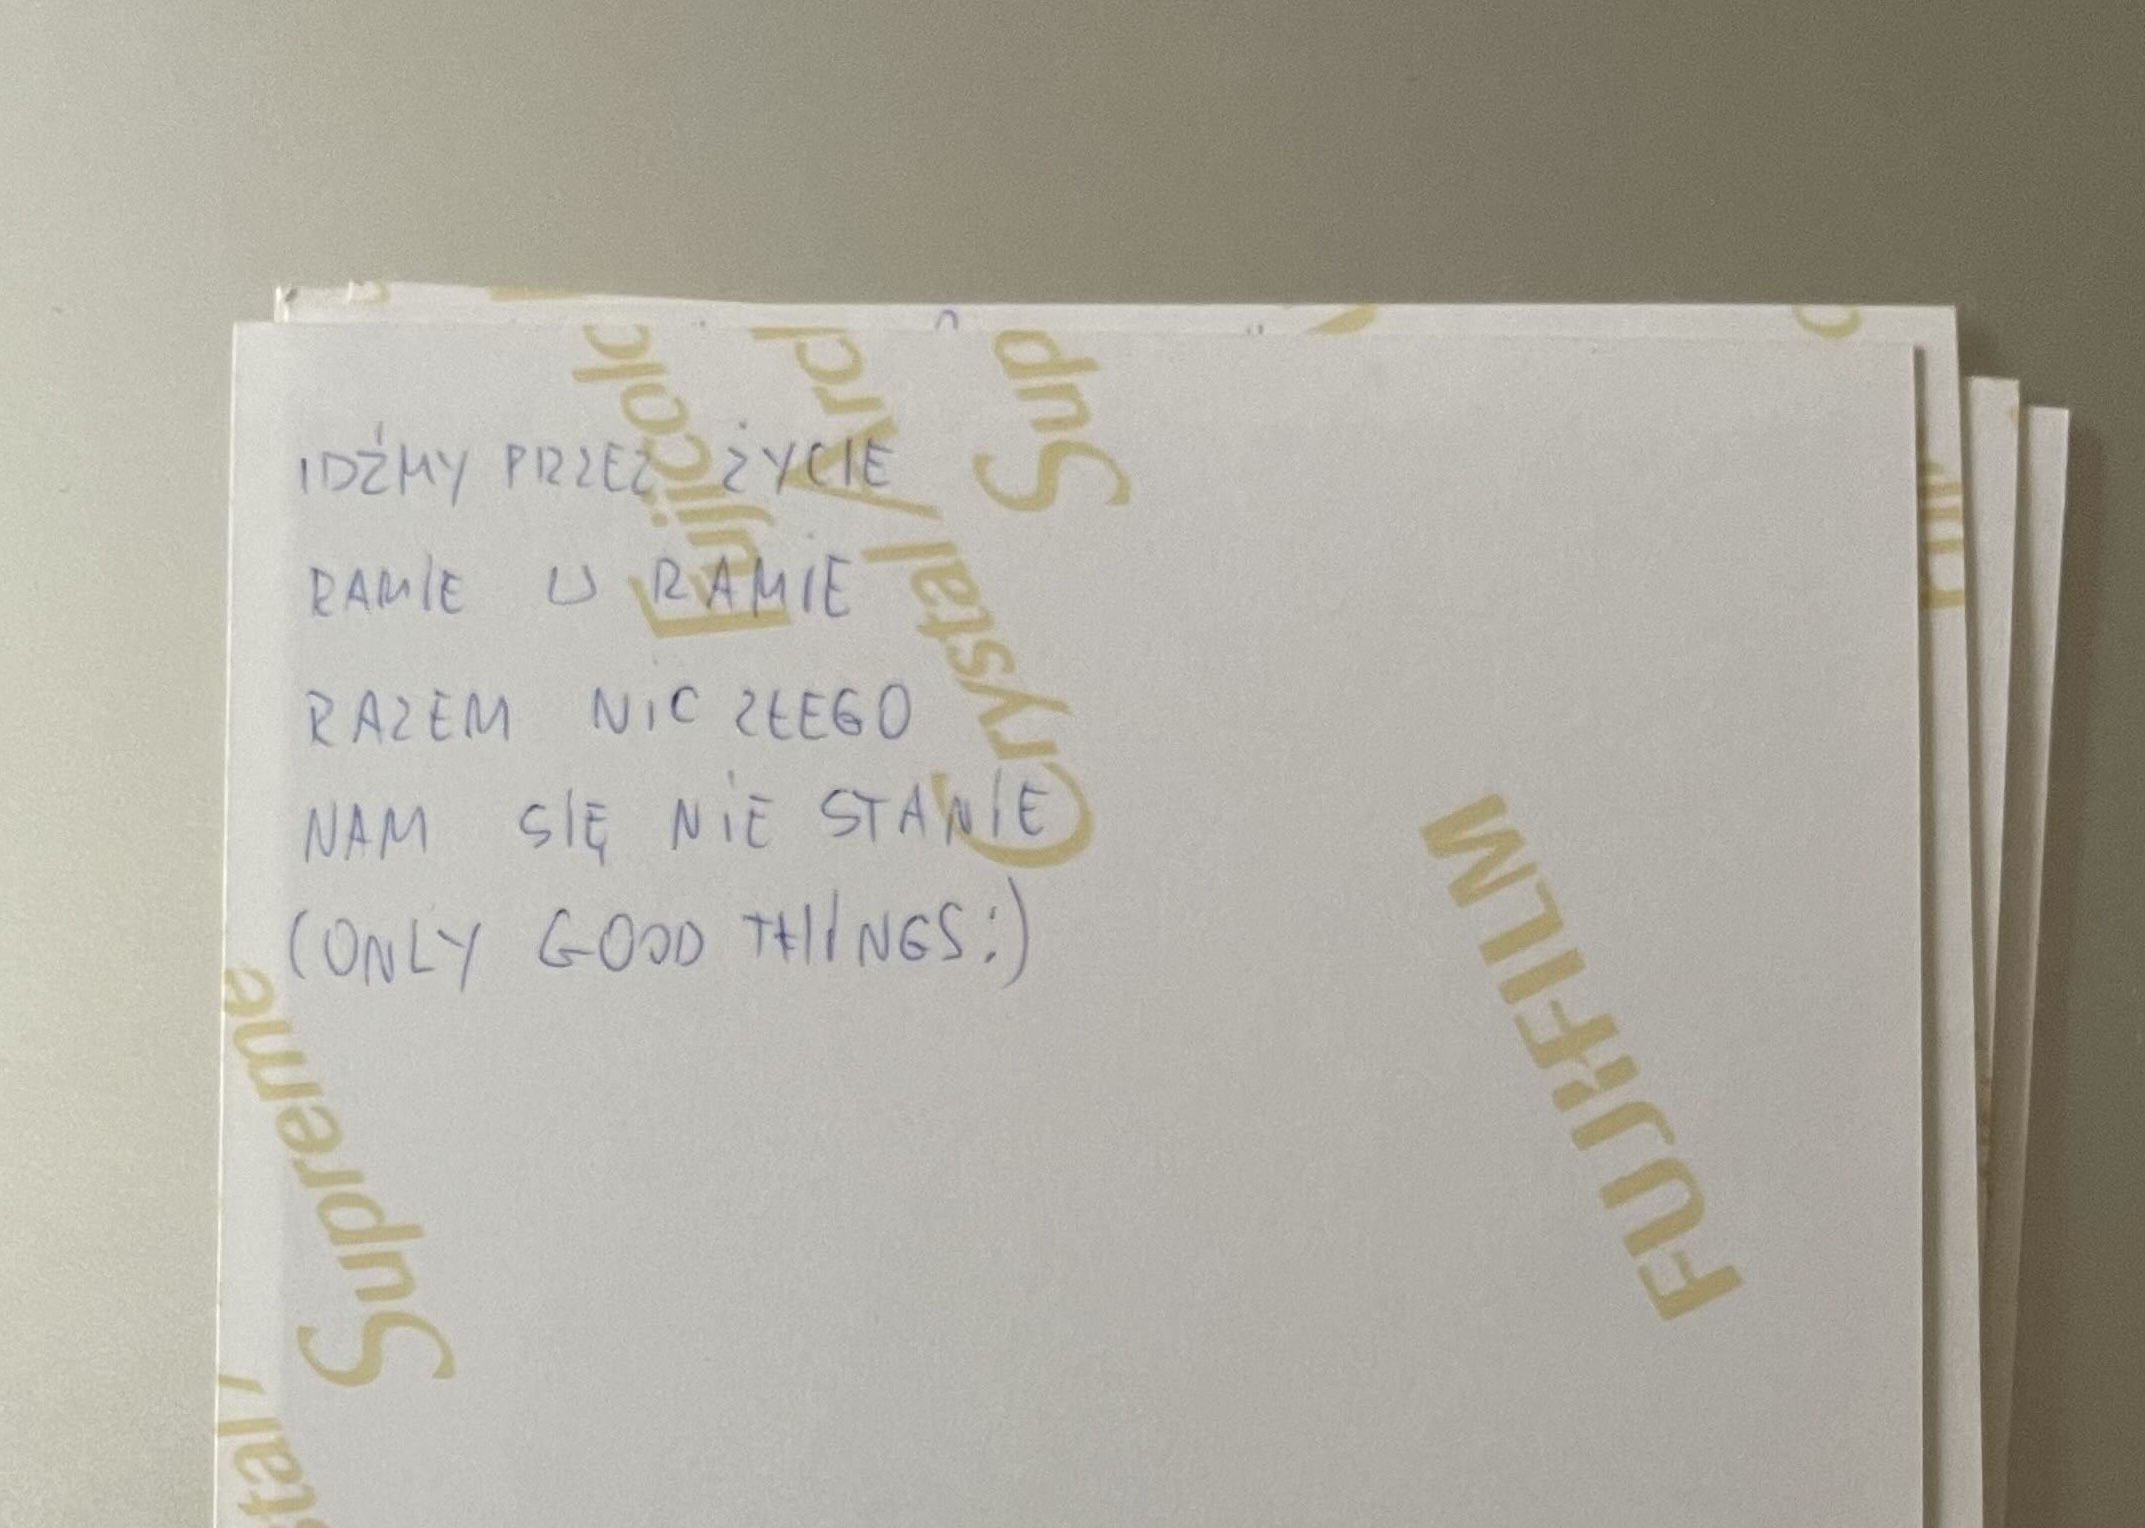 IDŹMY PRZEZ ŻYCIE
RAMIE W RAMIE
RAZEM NIC ZŁEGO
NAM SIĘ NIE STANIE
(ONLY GOOD THINGS:)
Fujicolo
Crystal / Arc
Sup
FUJIFILM
Supreme
stal /